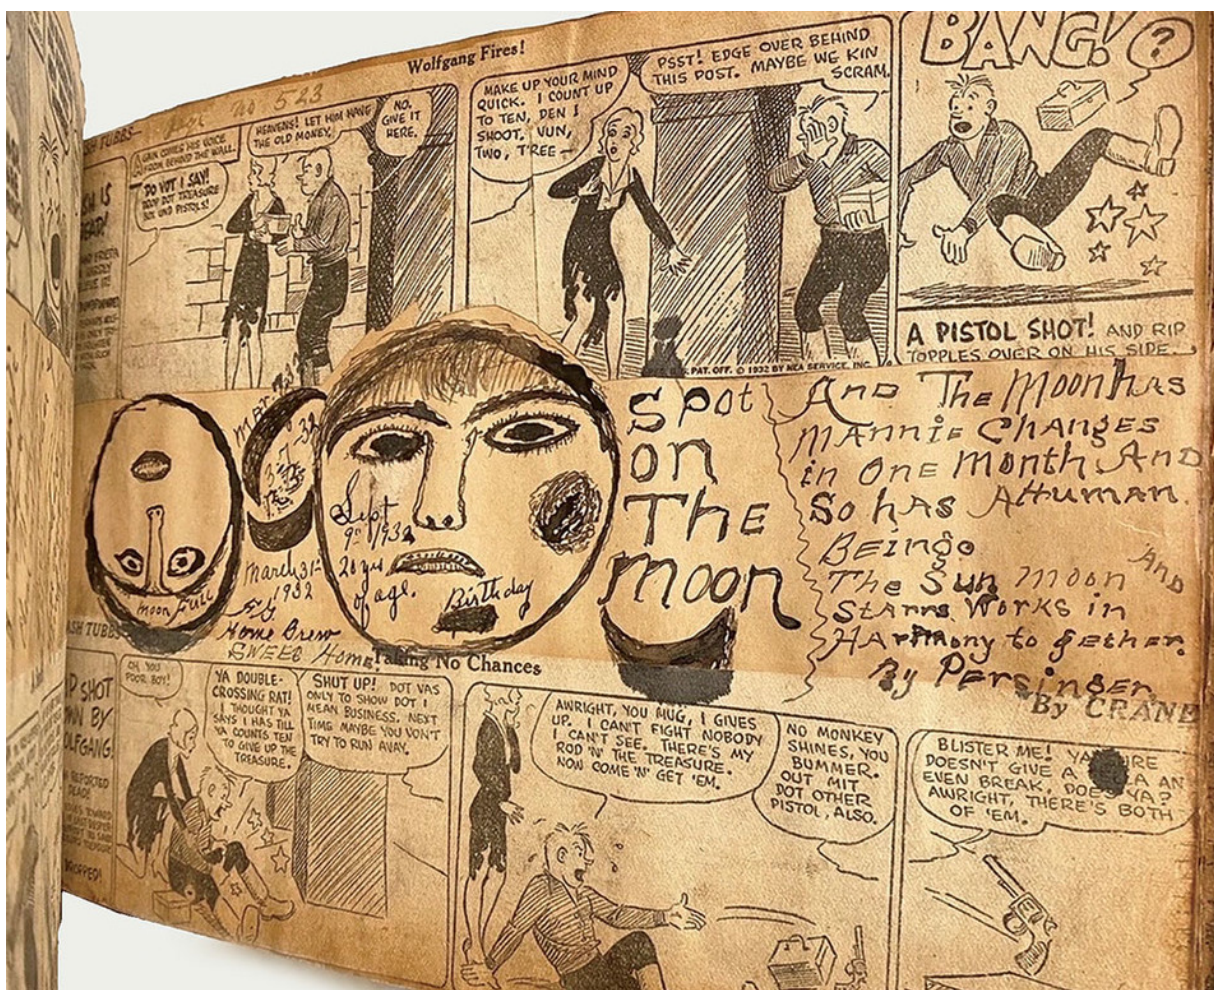 Wolfgang Fires!
No 523
ASH TUBBS—
AGAIN COMES HIS VOICE
FROM BEHIND THE WALL.
DO VOT I SAY!
DROP DOT TREASURE
BOX UND PISTOLS!
HEAVENS! LET HIM HAVE
THE OLD MONEY.
NO.
GIVE IT
HERE.
MAKE UP YOUR MIND
QUICK. I COUNT UP
TO TEN, DEN I
SHOOT. VUN,
TWO, T'REE—
PSST! EDGE OVER BEHIND
THIS POST. MAYBE WE KIN
SCRAM.
BANG!
?
A PISTOL SHOT! AND RIP
TOPPLES OVER ON HIS SIDE.
PAT. OFF. © 1932 BY NEA SERVICE, INC.
Moon Full
March 31st
1932
Home Brew
SWEET Home
Sept
9th 1932
20 yrs
of age.
Birthday
Spot
on
The
Moon
And The Moon has
MAnnie Changes
in One Month And
So has A Human
Beingo
And
The Sun Moon
Starrs Works in
HArmony to gether.
By Persinger
ASH TUBBS
Taking No Chances
By CRANE
P SHOT
WN BY
OLFGANG!
OH, YOU
POOR BOY!
YA DOUBLE-
CROSSING RAT!
I THOUGHT YA
SAYS I HAS TILL
YA COUNTS TEN
TO GIVE UP THE
TREASURE.
SHUT UP! DOT VAS
ONLY TO SHOW DOT I
MEAN BUSINESS. NEXT
TIME MAYBE YOU VON'T
TRY TO RUN AVAY.
AWRIGHT, YOU MUG, I GIVES
UP. I CAN'T FIGHT NOBODY
I CAN'T SEE. THERE'S MY
ROD 'N' THE TREASURE.
NOW COME 'N' GET 'EM.
NO MONKEY
SHINES, YOU
BUMMER.
OUT MIT
DOT OTHER
PISTOL, ALSO.
BLISTER ME! YA IRE
DOESN'T GIVE A A AN
EVEN BREAK, DOES YA?
AWRIGHT, THERE'S BOTH
OF 'EM.